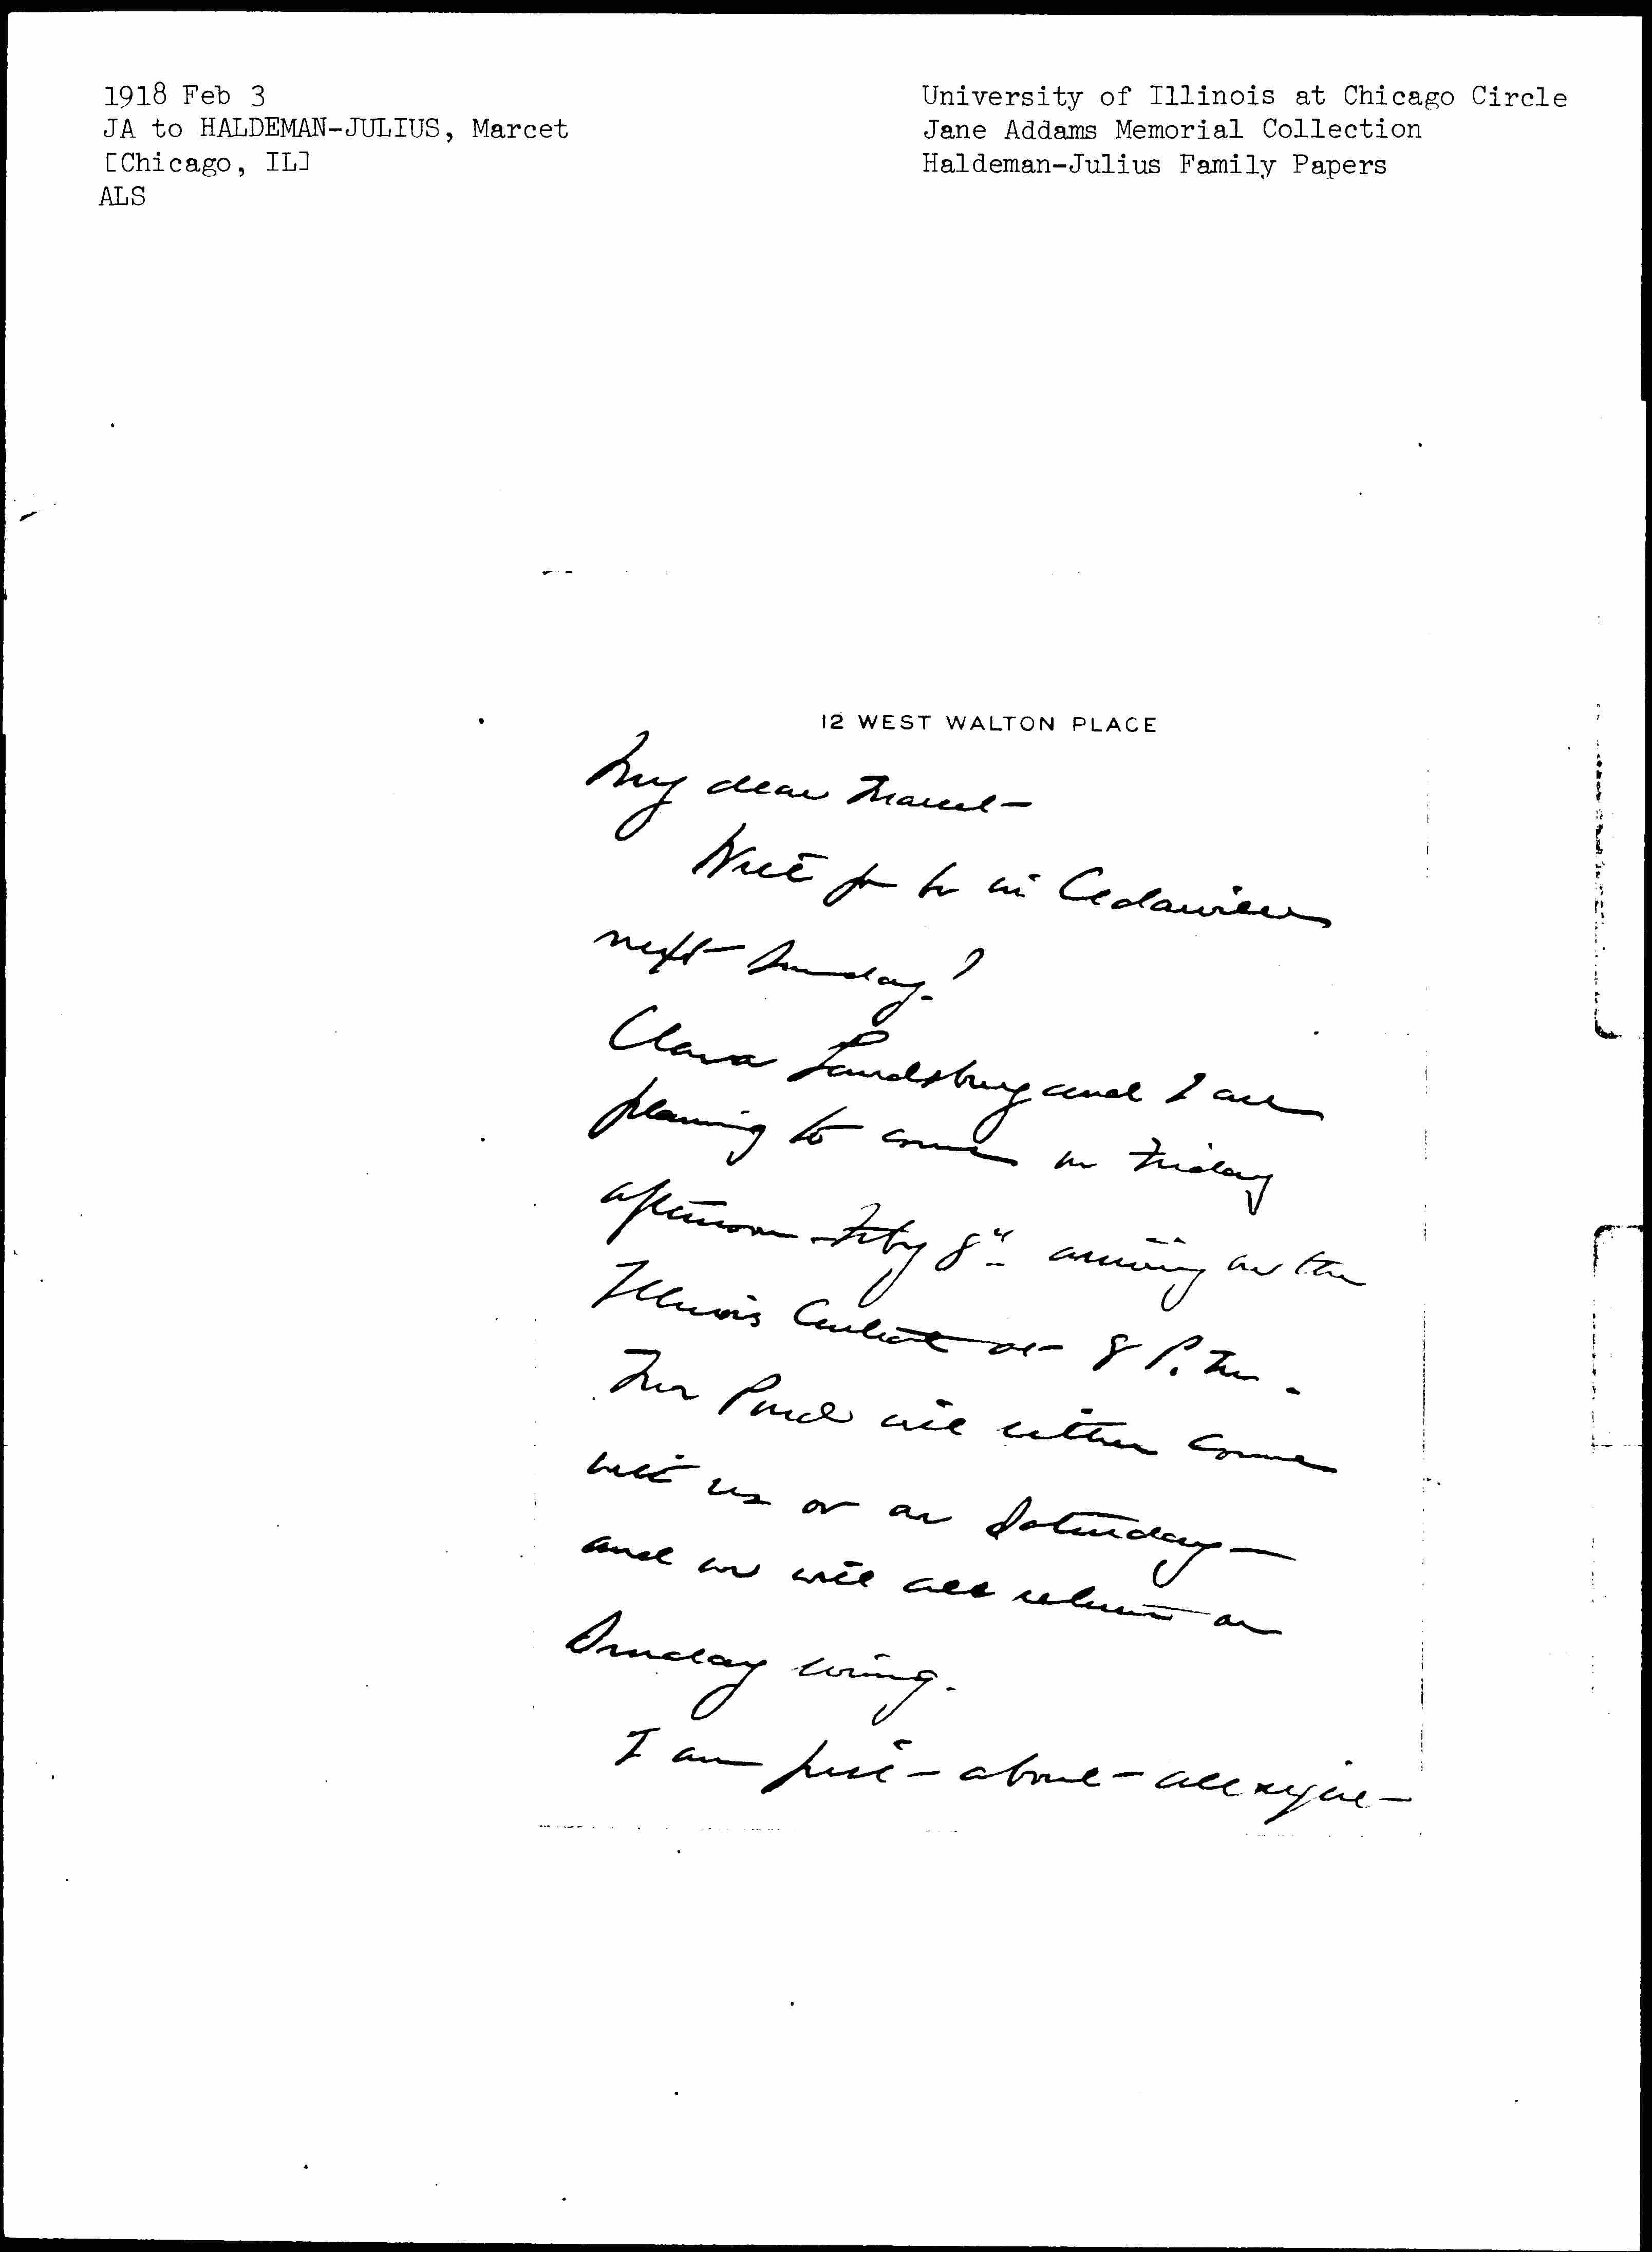 1918 Feb 3
JA to HALDEMAN-JULIUS, Marcet
[Chicago, IL]
ALS
University of Illinois at Chicago Circle
Jane Addams Memorial Collection
Haldeman-Julius Family Papers
12 WEST WALTON PLACE
My dear Marcet—
Will you be in Cedarville
next Sunday?
Clara Landsburg and I are
planning to come on Friday
afternoon Feby 8" arriving on the
Illinois Central at 8 P. M.
Mr Pond will either come
with us or on Saturday—
and we will all return on
Sunday evening.
I am just about all right—